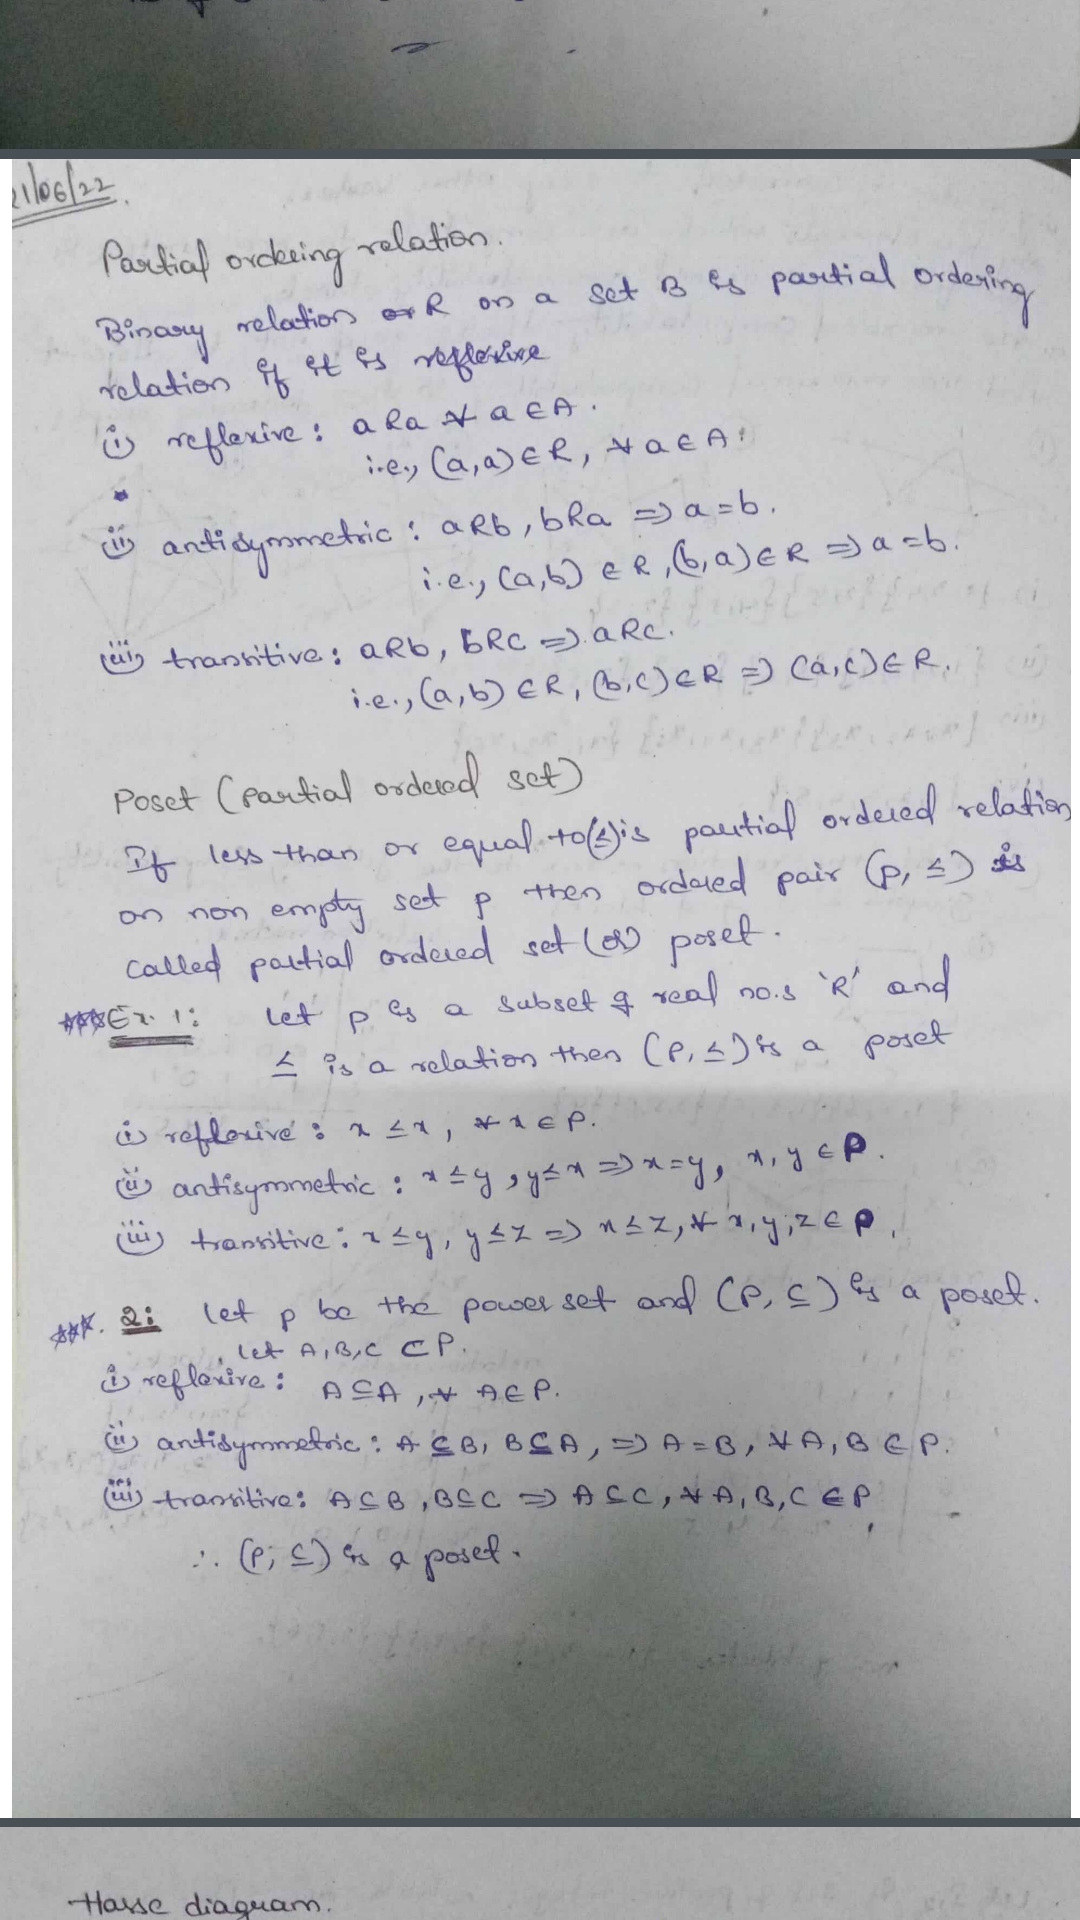 21/06/22.
Partial ordering relation.
Binary relation R on a set B is partial ordering
relation if it is reflexive
(i) reflexive : aRa ∀ a ∈ A.
i.e., (a,a) ∈ R, ∀ a ∈ A.
(ii) antisymmetric : aRb, bRa => a = b.
i.e., (a,b) ∈ R, (b,a) ∈ R => a = b.
(iii) transitive : aRb, bRc => aRc.
i.e., (a,b) ∈ R, (b,c) ∈ R => (a,c) ∈ R.
Poset (partial ordered set)
If less than or equal to(≤) is partial ordered relation
on non empty set p then ordered pair (p, ≤) is
called partial ordered set (or) poset.
*** Ex. 1: Let p is a subset of real no.s 'R' and
≤ is a relation then (P, ≤) is a poset
(i) reflexive : x ≤ x, ∀ x ∈ P.
(ii) antisymmetric : x ≤ y, y ≤ x => x = y, x, y ∈ P.
(iii) transitive : x ≤ y, y ≤ z => x ≤ z, ∀ x, y, z ∈ P.
***. 2: let p be the power set and (P, ⊆) is a poset.
let A, B, C ⊂ P.
(i) reflexive : A ⊆ A, ∀ A ∈ P.
(ii) antisymmetric : A ⊆ B, B ⊆ A, => A = B, ∀ A, B ∈ P.
(iii) transitive : A ⊆ B, B ⊆ C => A ⊆ C, ∀ A, B, C ∈ P
∴ (P, ⊆) is a poset.
Hasse diagram.